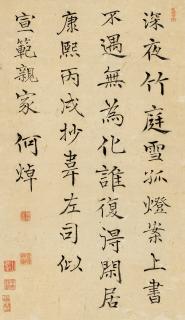 深夜竹庭雪孤燈案上書
不遇無為化誰復得閒居
康熙丙戌抄韋左司似
宣範親家 何焯